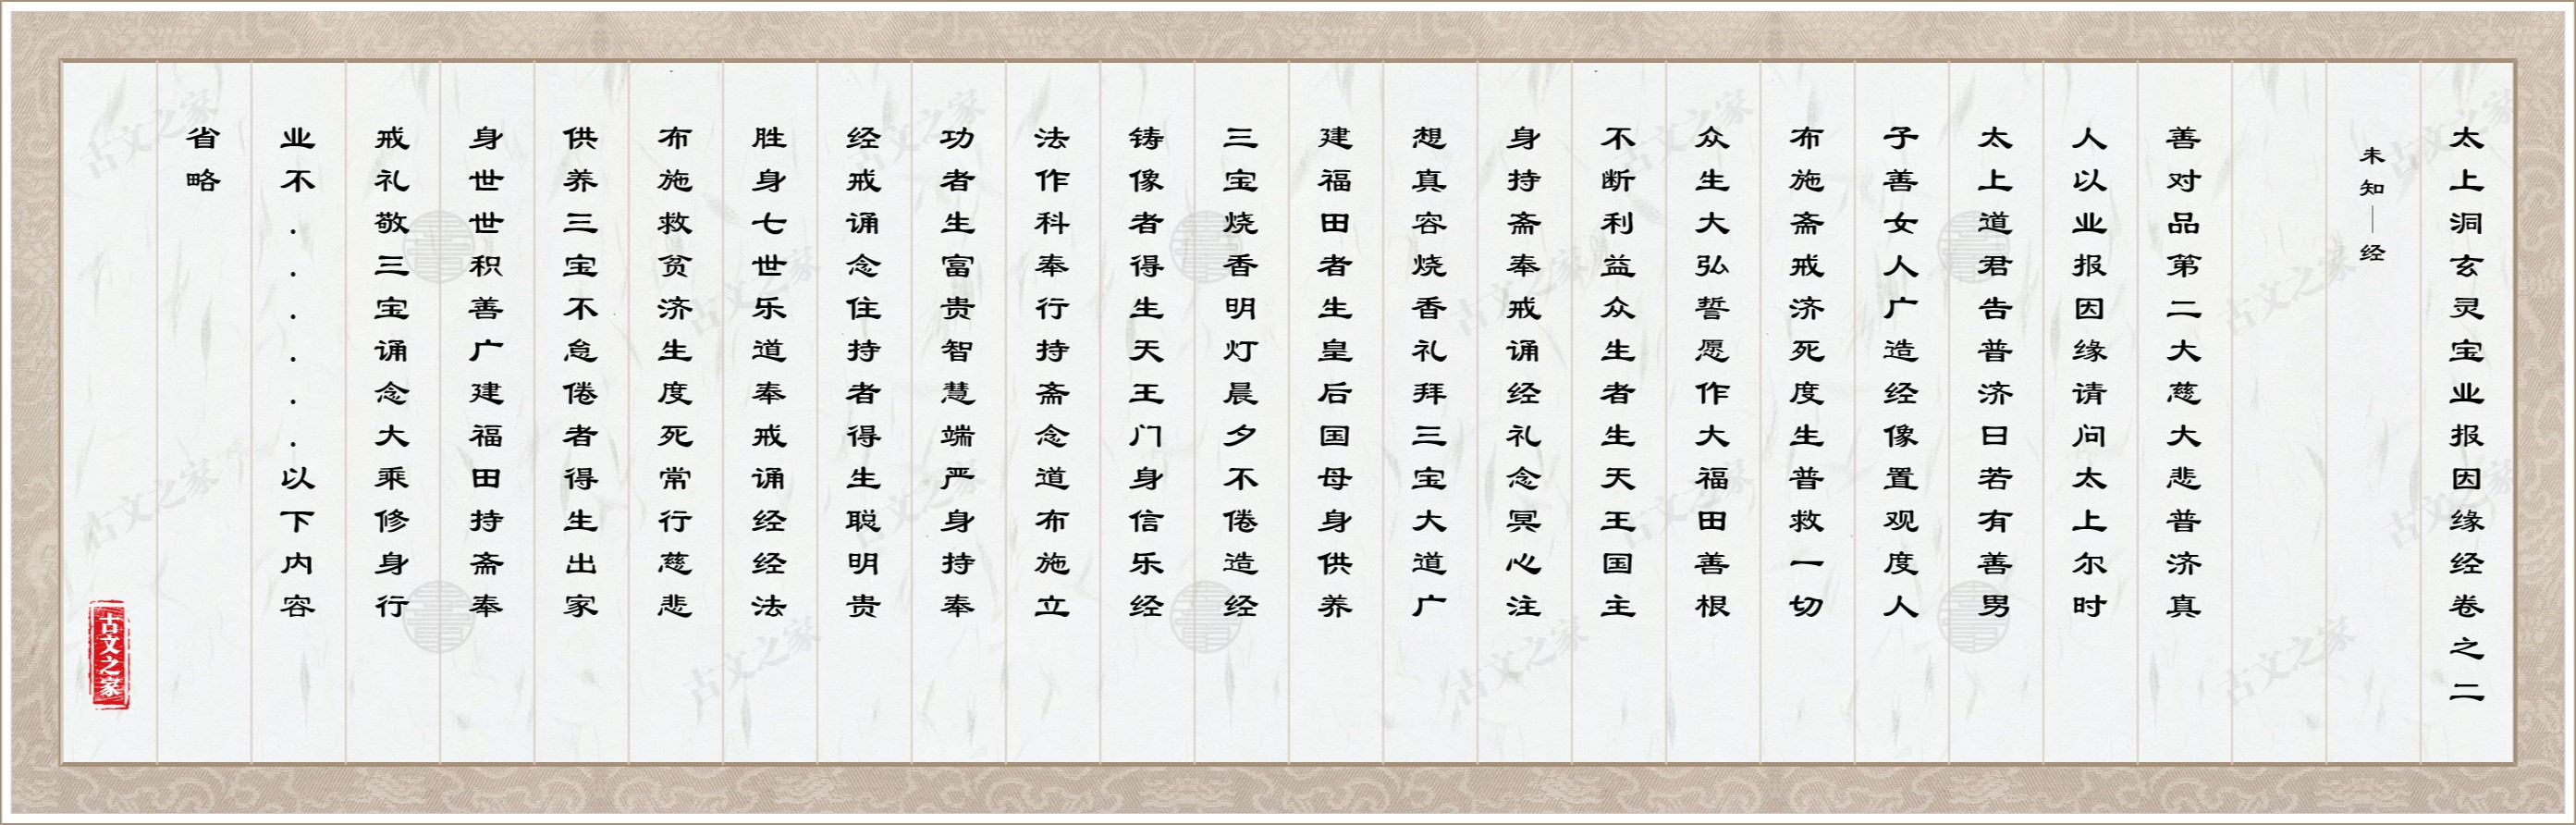 太上洞玄灵宝业报因缘经卷之二
未知｜经
善对品第二大慈大悲普济真
人以业报因缘请问太上尔时
太上道君告普济日若有善男
子善女人广造经像置观度人
布施斋戒济死度生普救一切
众生大弘誓愿作大福田善根
不断利益众生者生天王国主
身持斋奉戒诵经礼念冥心注
想真容烧香礼拜三宝大道广
建福田者生皇后国母身供养
三宝烧香明灯晨夕不倦造经
铸像者得生天王门身信乐经
法作科奉行持斋念道布施立
功者生富贵智慧端严身持奉
经戒诵念住持者得生聪明贵
胜身七世乐道奉戒诵经经法
布施救贫济生度死常行慈悲
供养三宝不怠倦者得生出家
身世世积善广建福田持斋奉
戒礼敬三宝诵念大乘修身行
业不......以下内容
省略
古文之家